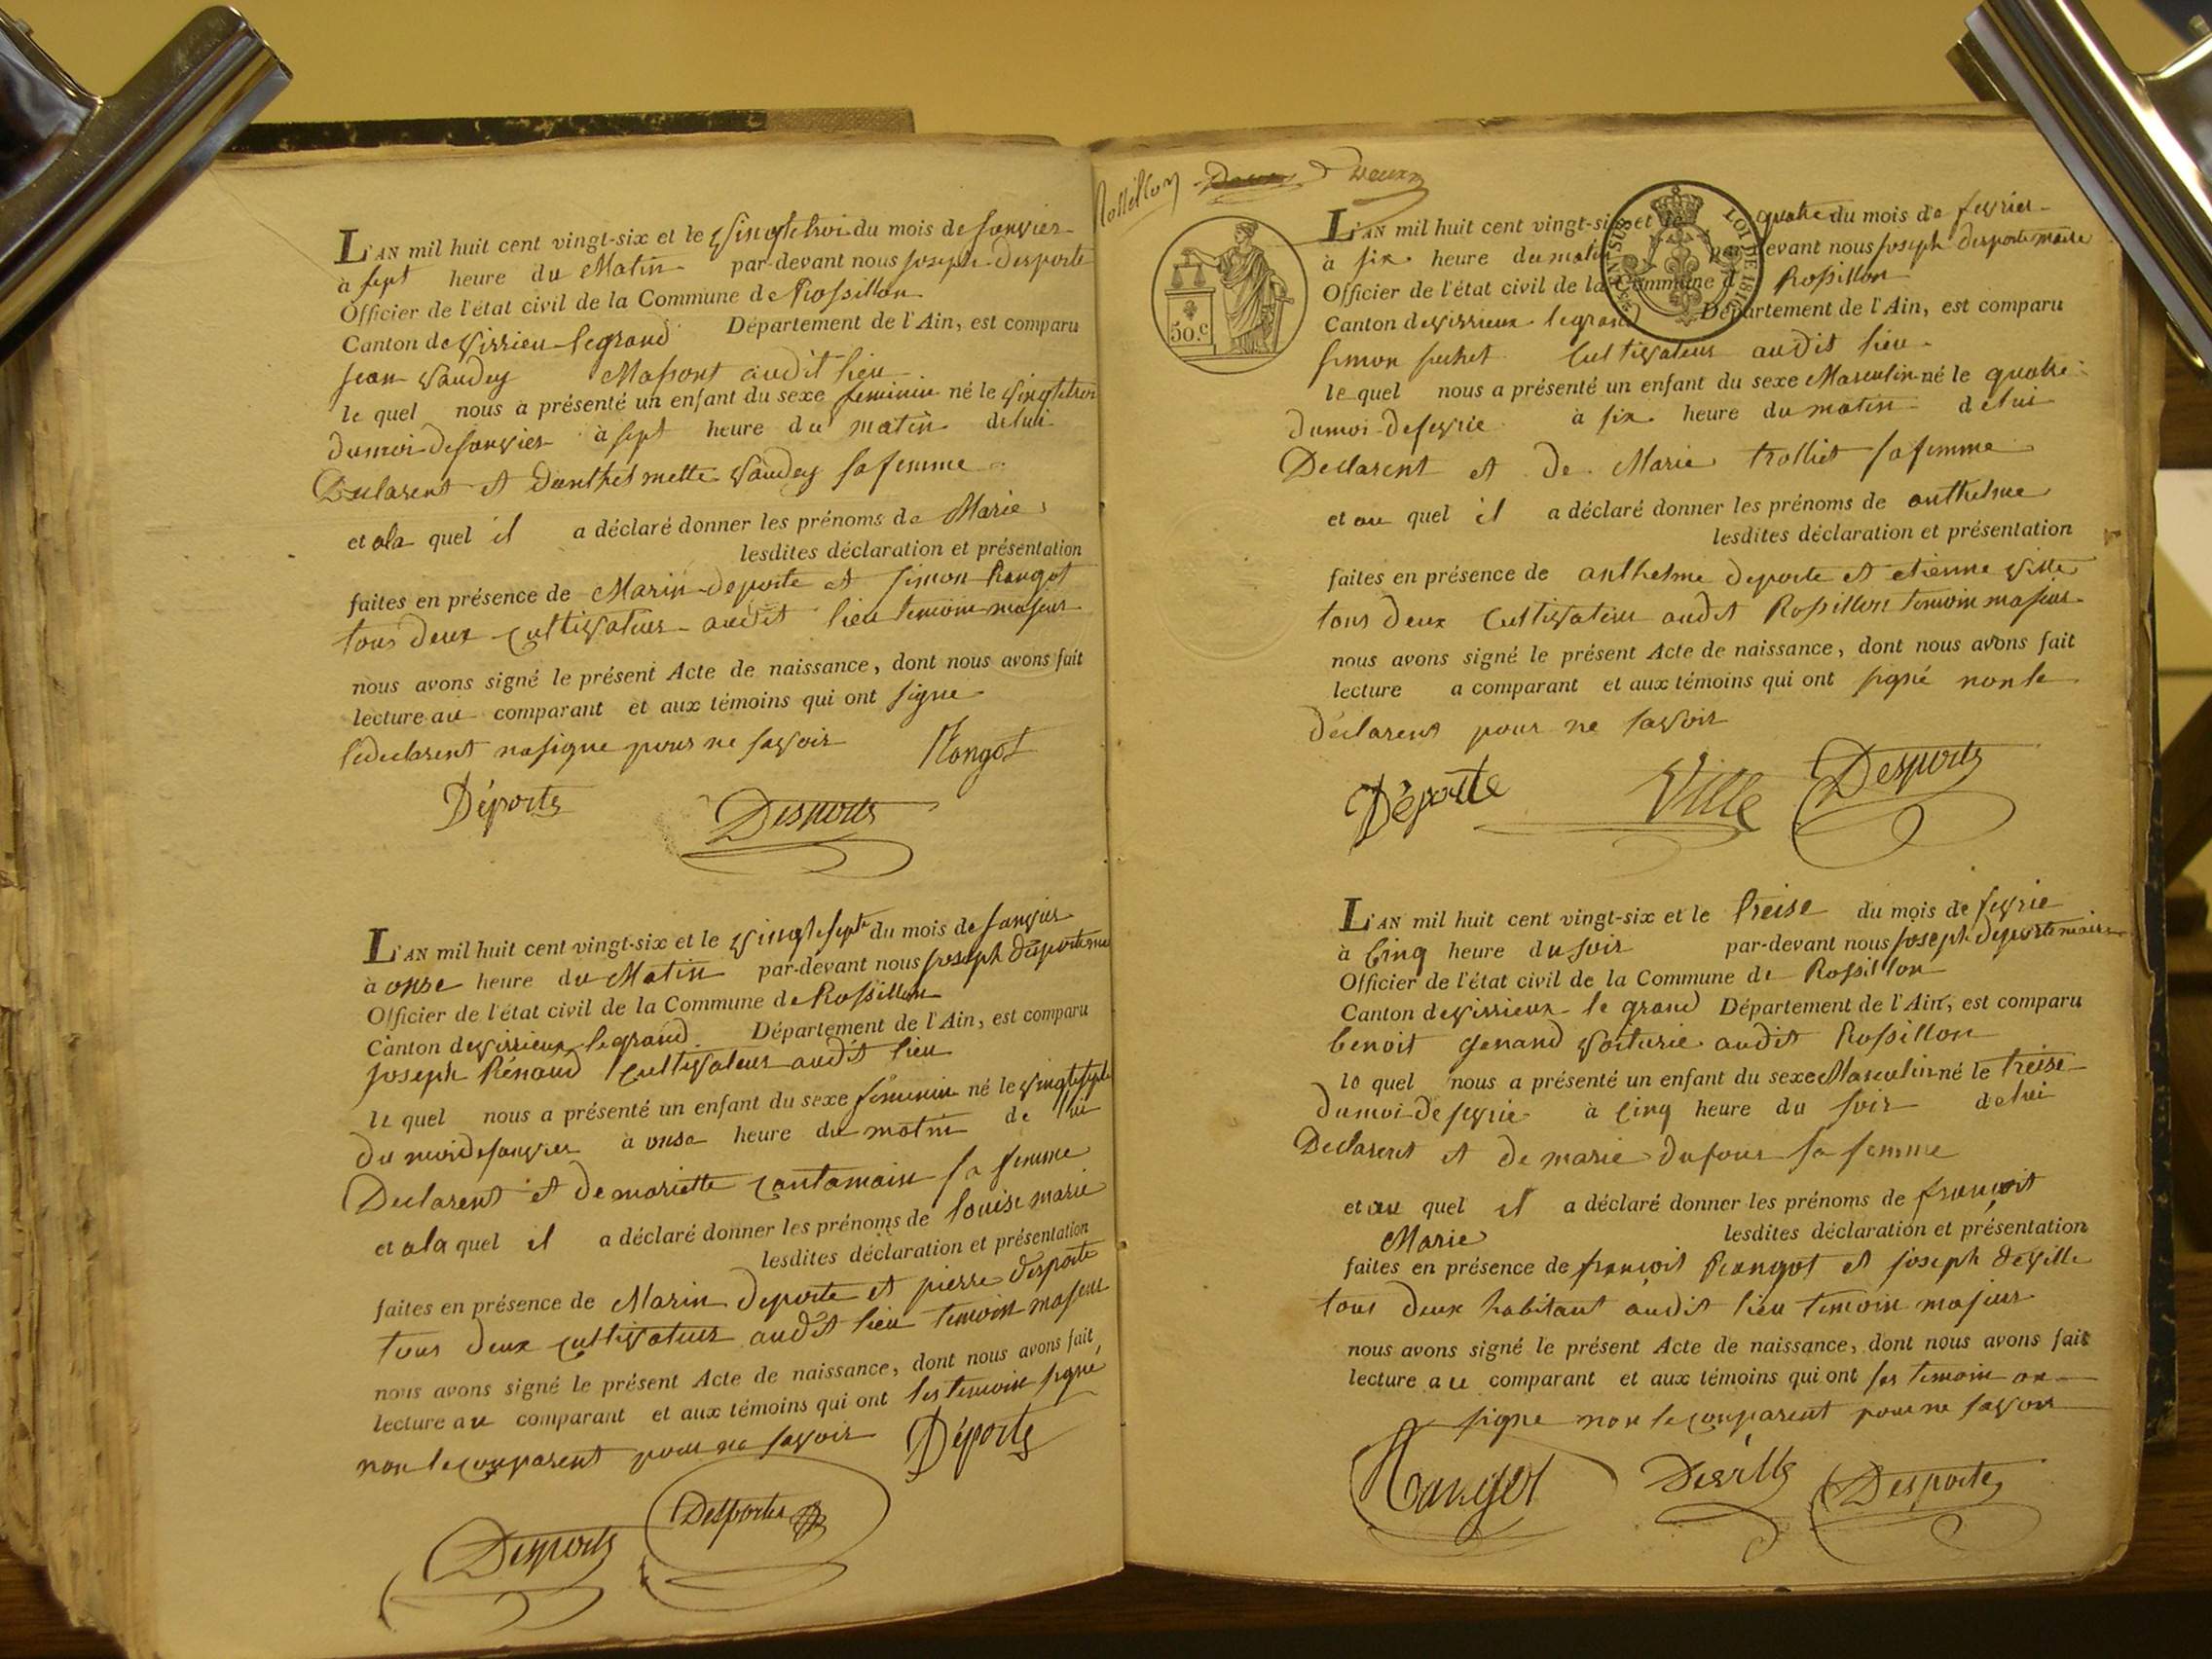 L'AN mil huit cent vingt-six et le vingt troi du mois de janvier
à sept heure du Matin par-devant nous joseph desporte
Officier de l'état civil de la Commune de Rossillon
Canton de virrieu legrand Département de l'Ain, est comparu
jean vaudey Masont audit lieu
le quel nous a présenté un enfant du sexe feminin né le vingt troi
du moi de janvier à sept heure du matin de lui
Declarent et danthelmette vaudey sa femme
et ala quel il a déclaré donner les prénoms de Marie
lesdites déclaration et présentation
faites en présence de Marin deporte et simon Rongot
tous deux cultivateur audit lieu temoin majeur
nous avons signé le présent Acte de naissance, dont nous avons fait
lecture au comparant et aux témoins qui ont signe
le declarent na signe pour ne savoir Rongot
Déporte Desporte
L'AN mil huit cent vingt-six et le vingt sept du mois de janvier
à onse heure du Matin par-devant nous joseph desporte
Officier de l'état civil de la Commune de Rossillon
Canton de virrieux legrand Département de l'Ain, est comparu
joseph Rénaud cultivateur audit lieu
le quel nous a présenté un enfant du sexe feminin né le vingt sept
du moi de janvier à onse heure du matin de lui
Declarent et de mariette cantamain sa femme
et ala quel il a déclaré donner les prénoms de louise marie
lesdites déclaration et présentation
faites en présence de Marin deporte et pierre desporte
tous deux cultivateur audit lieu temoin majeur
nous avons signé le présent Acte de naissance, dont nous avons fait
lecture au comparant et aux témoins qui ont les temoin signé
non le comparent pour ne savoir Déporte
Desporte Desportes
Rossillon deux
50.c
LOI DE 1816
L'AN mil huit cent vingt-six et le quatre du mois de fevrier
à six heure du matin par-devant nous joseph desporte maire
Officier de l'état civil de la Commune de Rossillon
Canton de virrieux legrand Département de l'Ain, est comparu
simon juhet cultivateur audit lieu
le quel nous a présenté un enfant du sexe Masculin né le quatre
du moi de fevrie à six heure du matin de lui
Declarent et de Marie trolliet sa femme
et au quel il a déclaré donner les prénoms de anthelme
lesdites déclaration et présentation
faites en présence de anthelme deporte et etienne ville
tous deux cultivateur audit Rossillon temoin majeur
nous avons signé le présent Acte de naissance, dont nous avons fait
lecture a comparant et aux témoins qui ont signé non le
déclarent pour ne savoir
Déporte Ville Desporte
L'AN mil huit cent vingt-six et le treise du mois de fevrie
à cinq heure du soir par-devant nous joseph desporte maire
Officier de l'état civil de la Commune de Rossillon
Canton de virrieux le grand Département de l'Ain, est comparu
benoit genand voiturie audit Rossillon
le quel nous a présenté un enfant du sexe Masculin né le treise
du moi de fevrie à cinq heure du soir de lui
Declarent et de marie dufour sa femme
et au quel il a déclaré donner les prénoms de françoit
Marie lesdites déclaration et présentation
faites en présence de françoit Rongot et joseph deville
tous deux habitant audit lieu temoin majeur
nous avons signé le présent Acte de naissance, dont nous avons fait
lecture au comparant et aux témoins qui ont les temoin on
signe non le comparent pour ne savoir
Rangot Deville Desporte